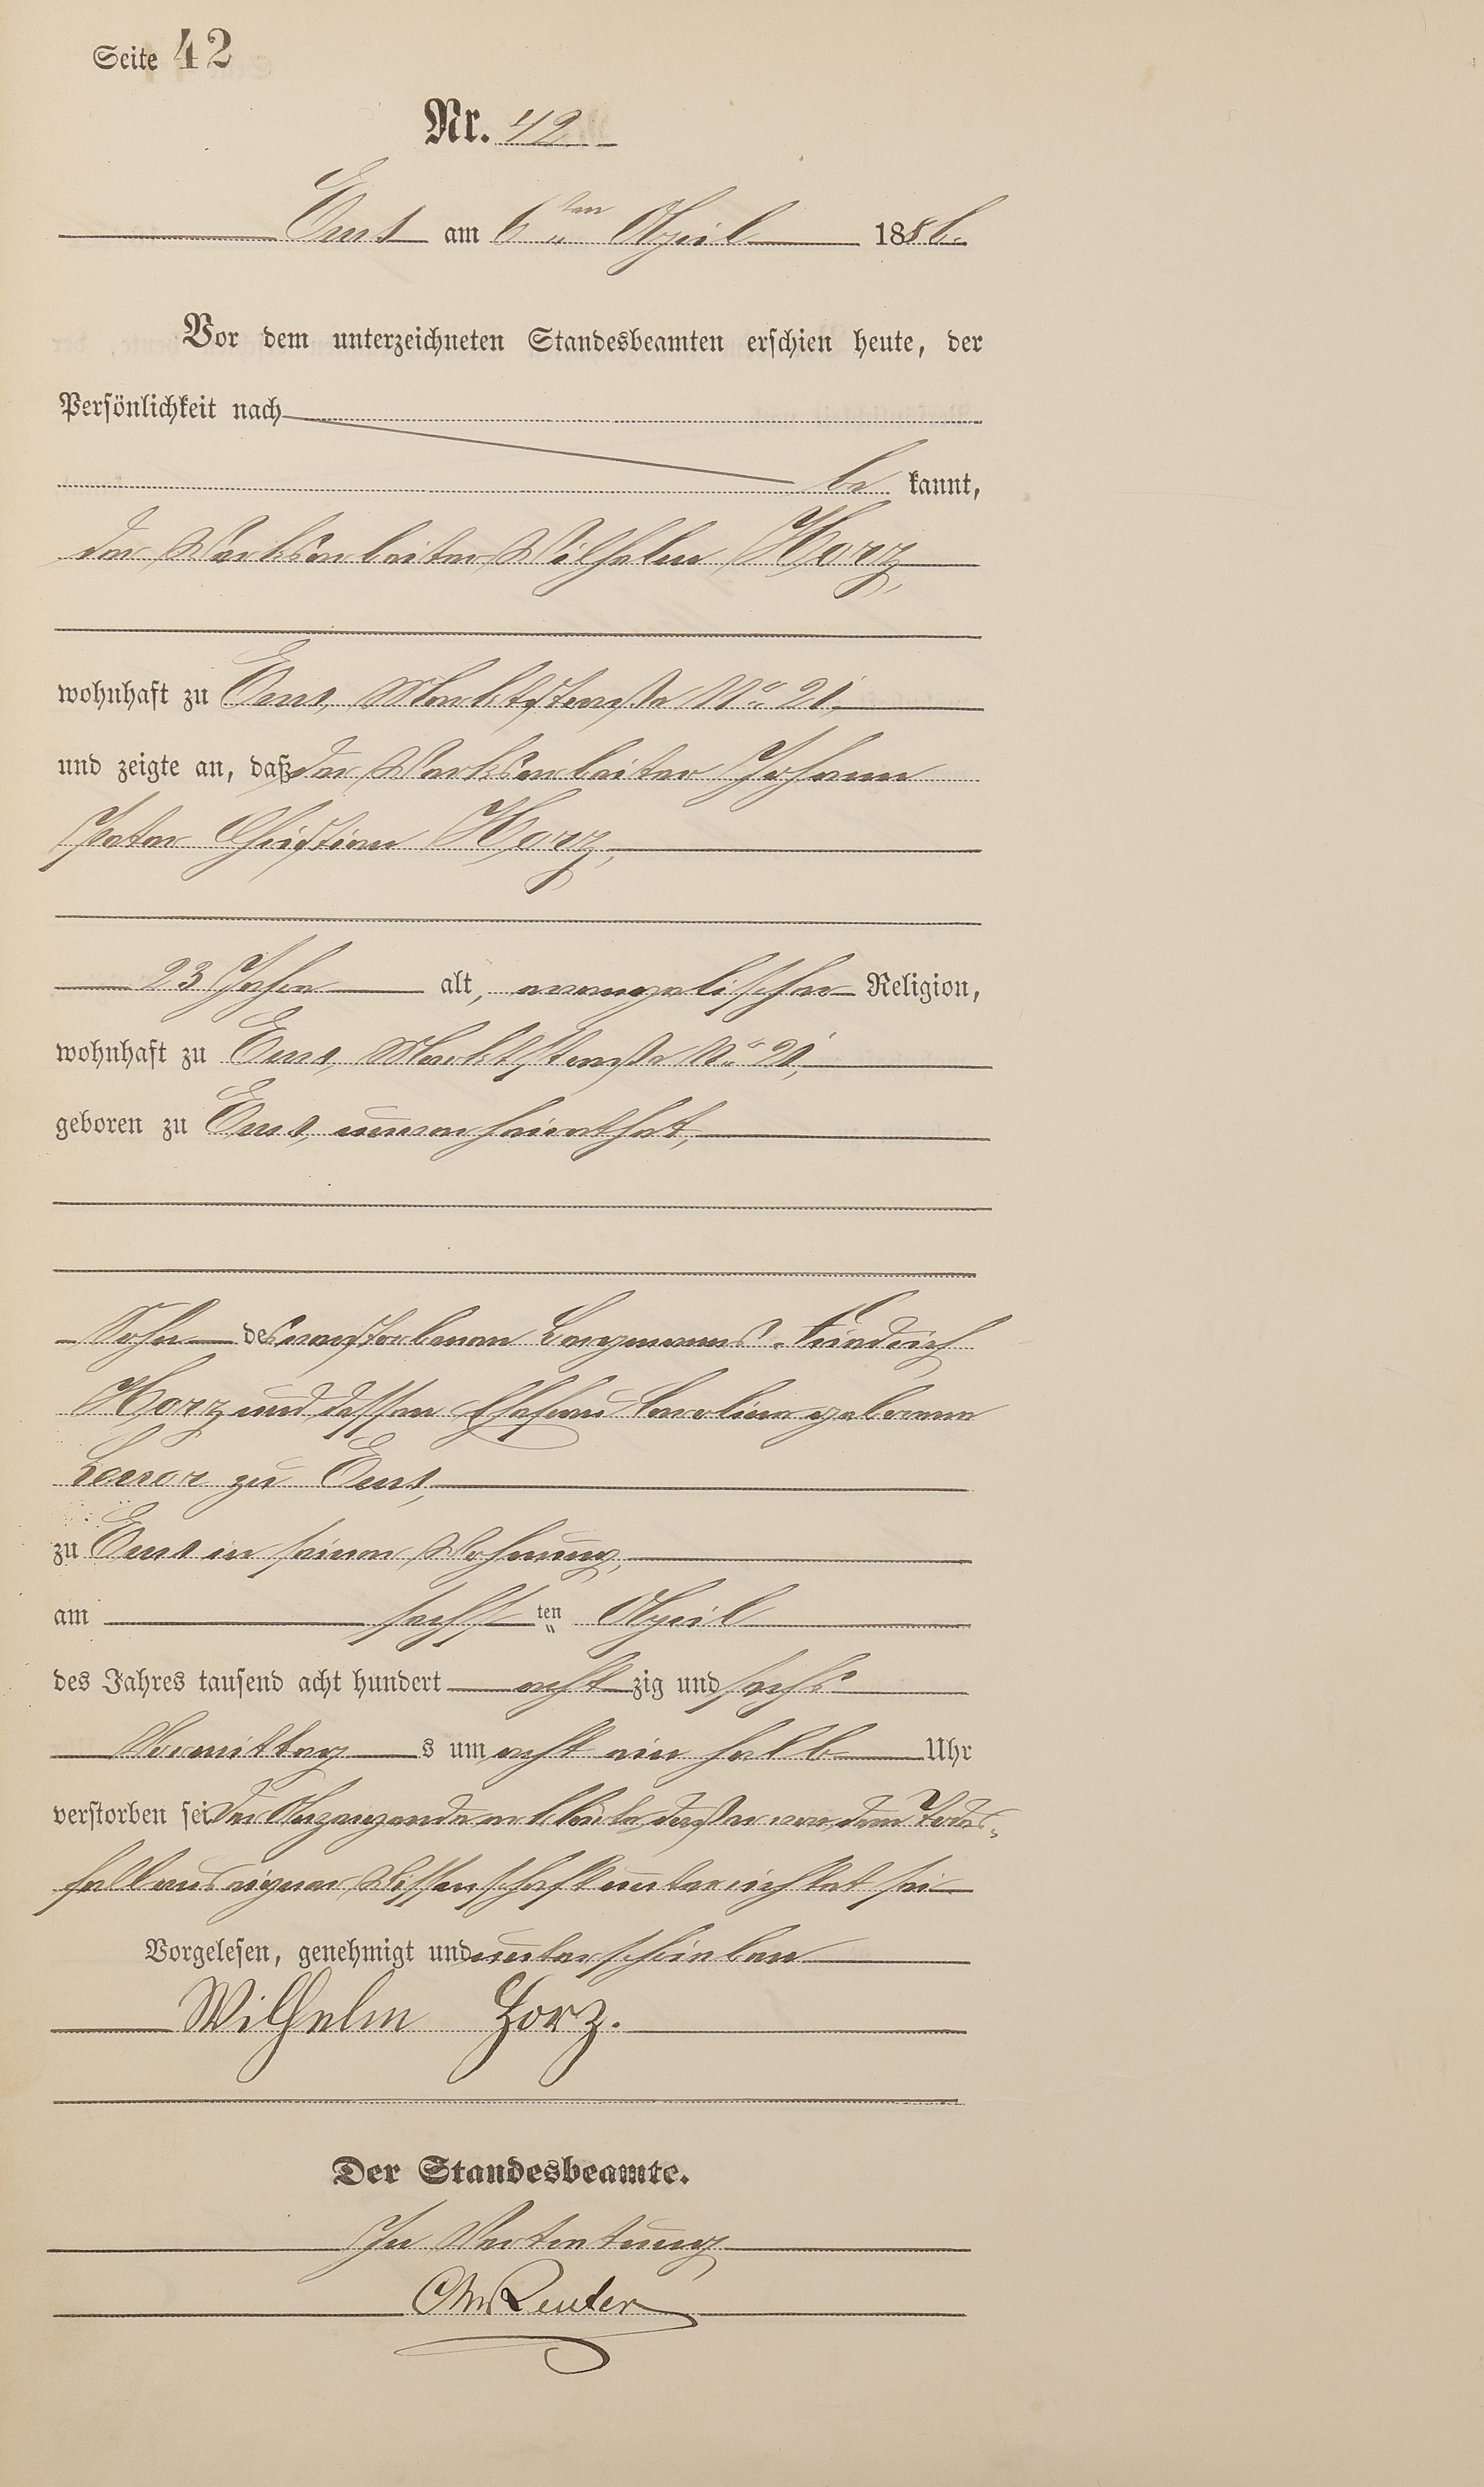 Seite 42
Nr. 42
Ems am 6ten April 1886.
Vor dem unterzeichneten Standesbeamten erschien heute, der
Persönlichkeit nach
be kannt,
der Werksarbeiter Wilhelm Horz,
wohnhaft zu Ems, Marktstraße No. 21,
und zeigte an, daß der Werksarbeiter Johann
Peter Christian Horz,
23 Jahre alt, evangelischer Religion,
wohnhaft zu Ems, Marktstraße No. 21,
geboren zu Ems, unverheirathet,
Sohn des verstorbenen Bergmanns Friedrich
Horz und dessen Ehefrau Caroline geborene
zu Ems,
zu Ems in seiner Wohnung,
am sechsten April
des Jahres tausend acht hundert acht zig und sechs
Vormittag s um acht ein halb Uhr
verstorben sei Der Anzeigende erklärte, daß er von dem Todes-
fall aus eigner Wissenschaft unterrichtet sei
Vorgelesen, genehmigt und unterschrieben
Wilhelm Horz.
Der Standesbeamte.
In Vertretung
Reuter